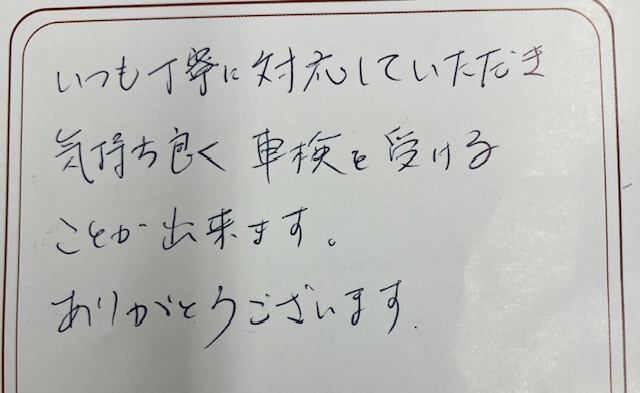 いつも丁寧に対応していただき
気持ち良く車検を受ける
ことが出来ます。
ありがとうございます.